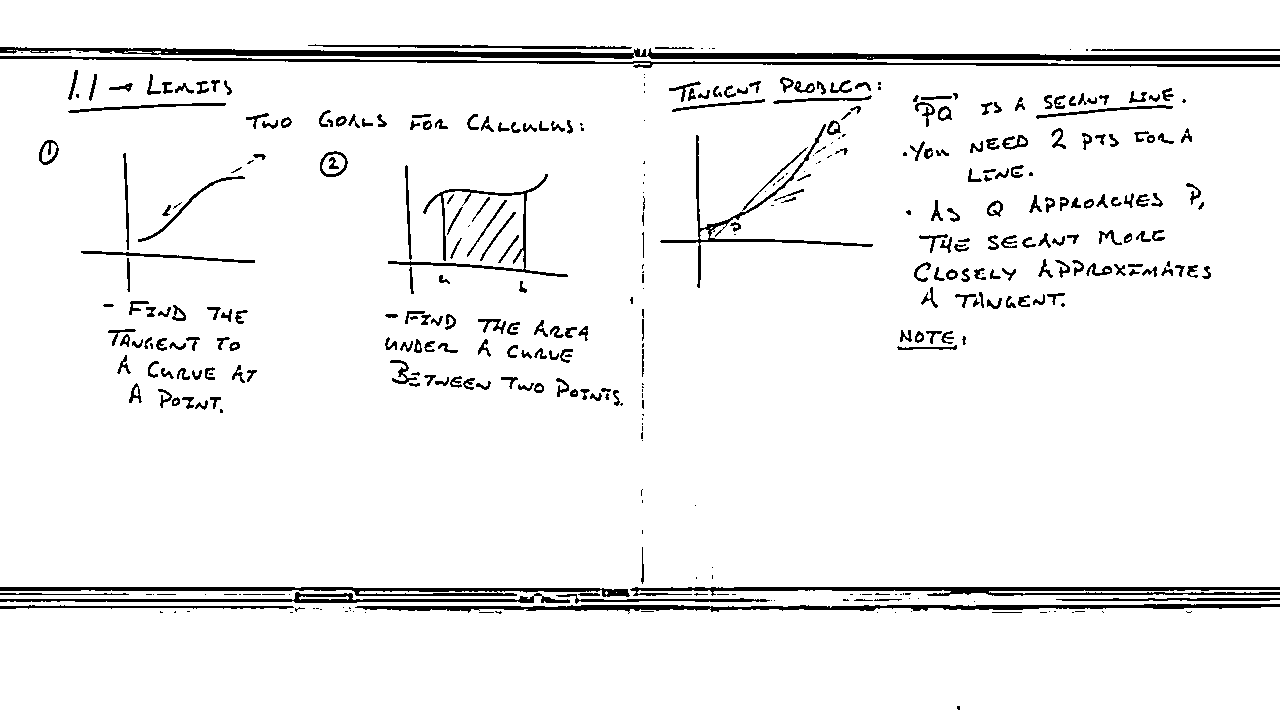 1.1 → LIMITS
TWO GOALS FOR CALCULUS:
①
②
a
b
- FIND THE
TANGENT TO
A CURVE AT
A POINT.
- FIND THE AREA
UNDER A CURVE
BETWEEN TWO POINTS.
TANGENT PROBLEM:
Q
P
"PQ" IS A SECANT LINE.
• YOU NEED 2 PTS FOR A
LINE.
• AS Q APPROACHES P,
THE SECANT MORE
CLOSELY APPROXIMATES
A TANGENT.
NOTE: